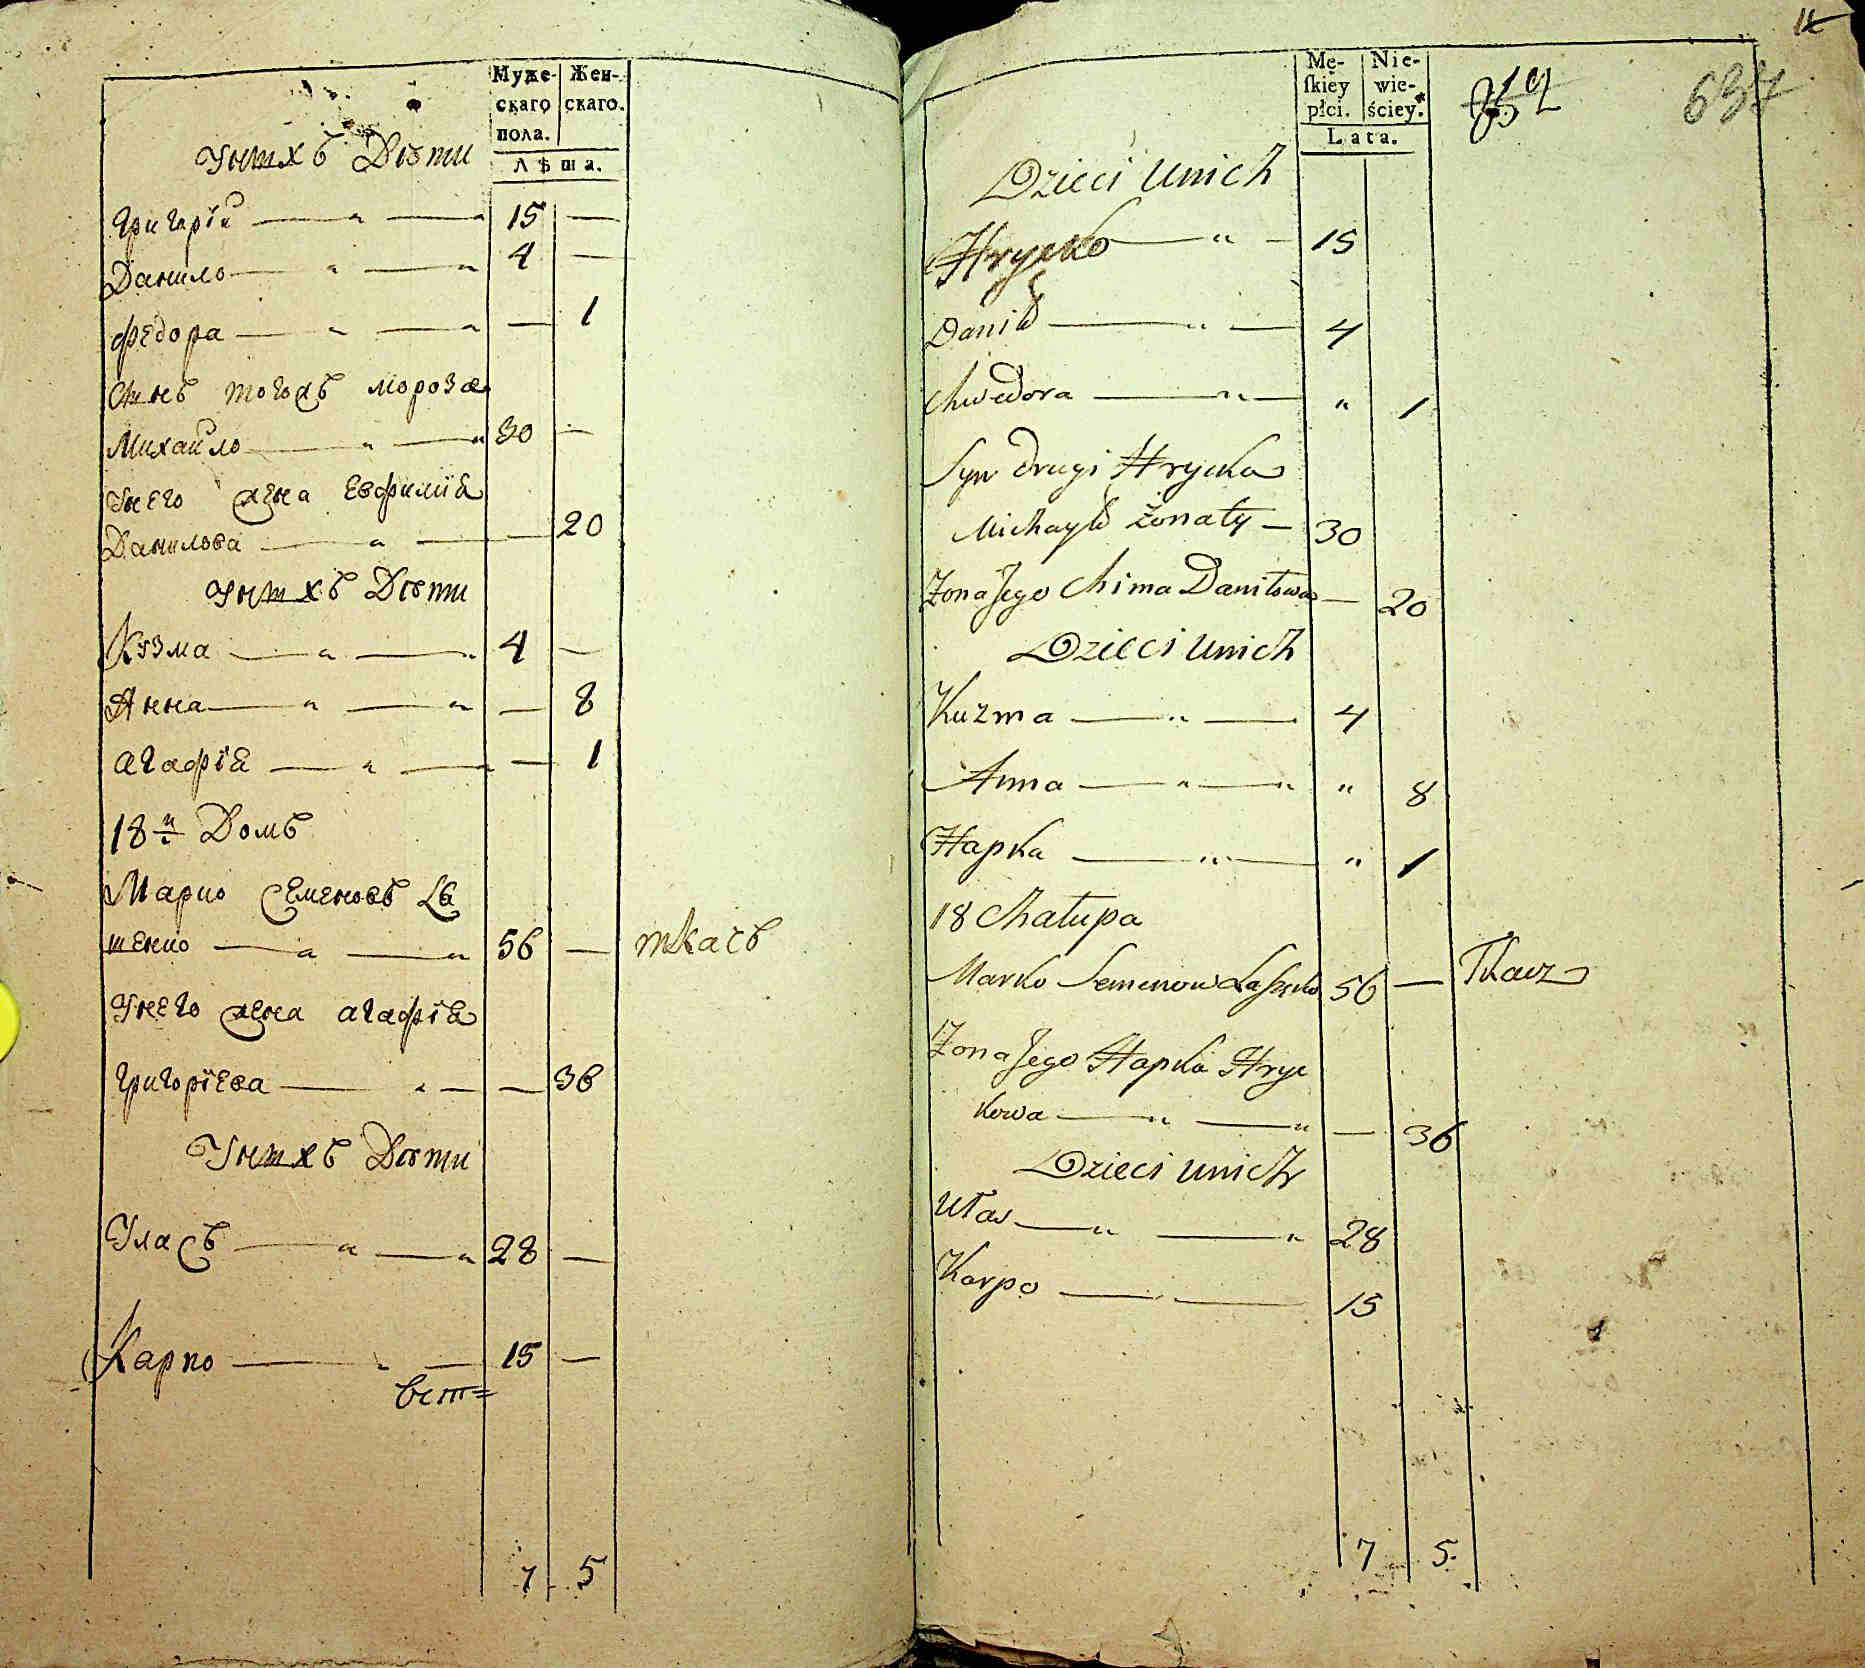 Муже-
скаго
пола.
Жен-
скаго.
Лѣта.
У нихъ Дѣти
Григорїй — " — " 15 —
Данило — " — " 4 —
Федора — " — " — 1
Сынъ тогожъ мороза
Михайло — " — " 30 —
У него жена Евфимїя
Данилова — " — — 20
У нихъ Дѣти
Кузма — " — 4 —
Анна — " — " — 8
Агафїя — " — — 1
18й Домъ
Марко Семеновъ Ля
шенко — " — " 56 — ткачъ
У него жена агафїя
Григорїева — " — — 36
У нихъ Дѣти
Уласъ — " — " 28 —
Карпо — " — 15 —
7 5
Mę-
skiey
płci.
Nie-
wie-
ściey.
Lata.
637
Dzieci u nich
Hrycko — " — 15
Daniło — " — 4
Chwedora — " — " 1
Syn drugi Hrycka
Michayło żonaty — 30
Żona Jego Chima Daniłowa — 20
Dzieci u nich
Kuzma — " — 4
Anna — " — " " 8
Hapka — " — " 1
18 Chałupa
Marko Semenow Laszenko 56 — Tkacz
Żona Jego Hapka Hryc
kowa — " — " — 36
Dzieci u nich
Ułas — " — " 28
Karpo — — 15
7 5